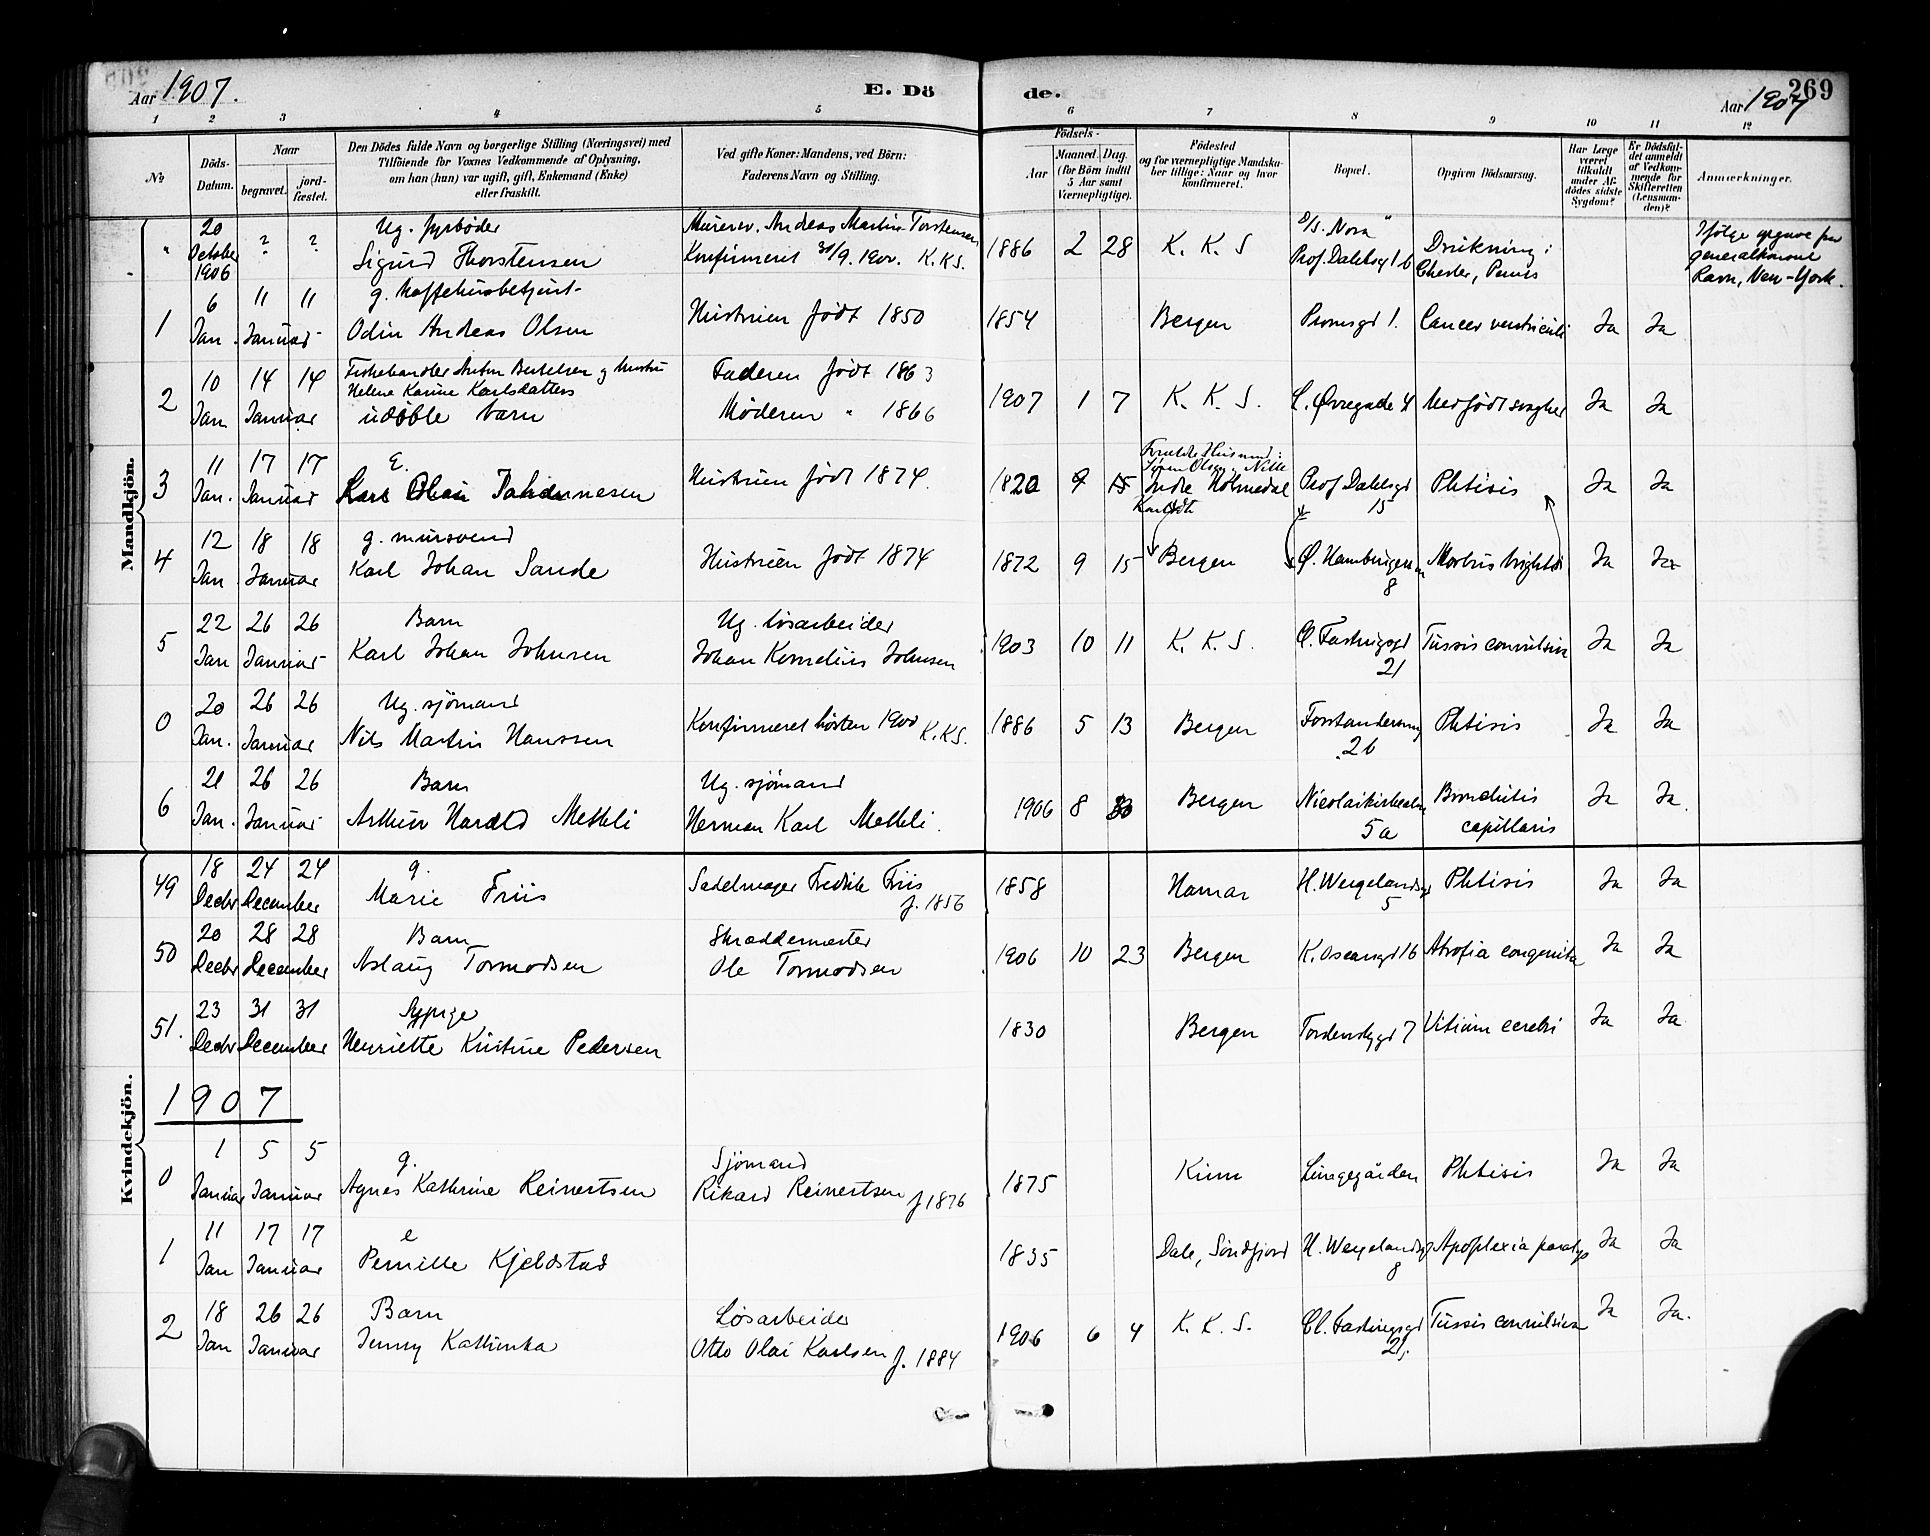 Aar 1907.
E. Dö
de.
269
Aar 1907
1 2 3 4 5 6 7 8 9 10 11 12
№
Döds-Datum.
Naar
begravet.
jord-fæstet.
Den Dödes fulde Navn og borgerlige Stilling (Næringsvei) med
Tilföiende for Voxnes Vedkommende af Oplysning,
om han (hun) var ugift, gift, Enkemand (Enke)
eller fraskilt.
Ved gifte Koner: Mandens, ved Börn:
Faderens Navn og Stilling.
Födsels-
Aar
Maaned. Dag.
(for Börn indtil
5 Aar samt
Værnepligtige).
Födested
og for værnepligtige Mandska-
ber tillige: Naar og hvor
konfirmeret.
Bopæl.
Opgiven Dödsaarsag.
Har Læge
været
tilkaldt
under Af-
dödes sidste
Sygdom?
Er Dödsfal-
det anmeldt
af Vedkom-
mende for
Skifteretten
(Lensman-
den)?
Anmærkninger.
Mandkjön.
" 20 October 1906 ? ? ? ?
Ug. fyrbøder
Sigurd Thorstensen
Murersv. Andeas Martin Torstensen
Konfirmeret 1900. K.K.S.
1886 2 28 K. K. S
D/S. "Nora"
Prof. Dahlsg 16
Drukning i
Chester,
Ifølge opgave fra
generalkonsul
Ravn, New-York.
1 6 Jan. 11 11 Januar
g. Kaffehusbetjent
Odin Andreas Olsen
Hustruen født 1850
1854 Bergen
Cancer ventriculi Ja Ja
2 10 Jan 14 14 Januar
Fiskehandler Anton Bertelsen og hustru
Helene Karine Karlsdatters
udøbte barn
Faderen født 1863
Moderen " 1866
1907 1 7 K. K. S. Øvregade
Medfødt svaghed Ja Ja
3 11 Jan. 17 17 Januar
E.
Johannesen
Hustruen født 1874.
1820 9 15
Indre Holmedal
Prof Dahlsgd 15
Phtisis Ja Ja
4 12 Jan 18 18 Januar
g. mursvend
Karl Johan Sande
Hustruen født 1874
1872 9 15 Bergen
8
Morbus brightii Ja Ja
5 22 Jan 26 26 Januar
Barn
Karl Johan Johnsen
Ug. løsarbeider
Johan Kornelius Johnsen
1903 10 11 K. K. S.
21
Tussis convulsiva Ja Ja
0 20 Jan. 26 26 Januar
Ug. sjömand
Nils Martin Hanssen
Konfirmeret høsten 1900 K.K.S.
1886 5 13 Bergen
26
Phtisis Ja Ja
6 21 Jan. 26 26 Januar
Barn
Arthur Harald Methli
Ug. sjömand
Herman Karl Methli.
1906 8 30 Bergen
5a
Bronchitis
capillaris Ja Ja.
Kvindekjön.
49 18 Decbr 24 24 December
g.
Marie Friis
Sadelmager Fredrik Friis
f. 1856
1858 Hamar
H. Wergelandsgd
5
Phtisis Ja Ja
50 20 Decbr 28 28 December
Barn
Aslaug Tormodsen
Skræddermester
Ole Tormodsen
1906 10 23 Bergen K. Oscarsgd 16
Atrofia congenita Ja Ja
51. 23 Decbr 31 31 December
Henriette Kristine Pedersen
1830 Bergen Tordenskjgd 7
Vitium cerebri Ja Ja
1907
0 1 Januar 5 5 Januar
g.
Agnes Kathrine Reinertsen
Sjömand
Rikard Reinertsen f 1876
1875 Kinn Lungegården Phtisis Ja Ja
1 11 Jan 17 17 Januar
e
Pernille Kjeldstad
1835 Dale, Söndfjord H. Wergelandsgd
8
Apoplexia Ja Ja
2 18 Jan 26 26 Januar
Barn
Jenny Kathinka
Løsarbeider
Otto Olai Karlsen f. 1884
1906 6 4 K. K. S.
21.
Tussis convulsiva Ja Ja.